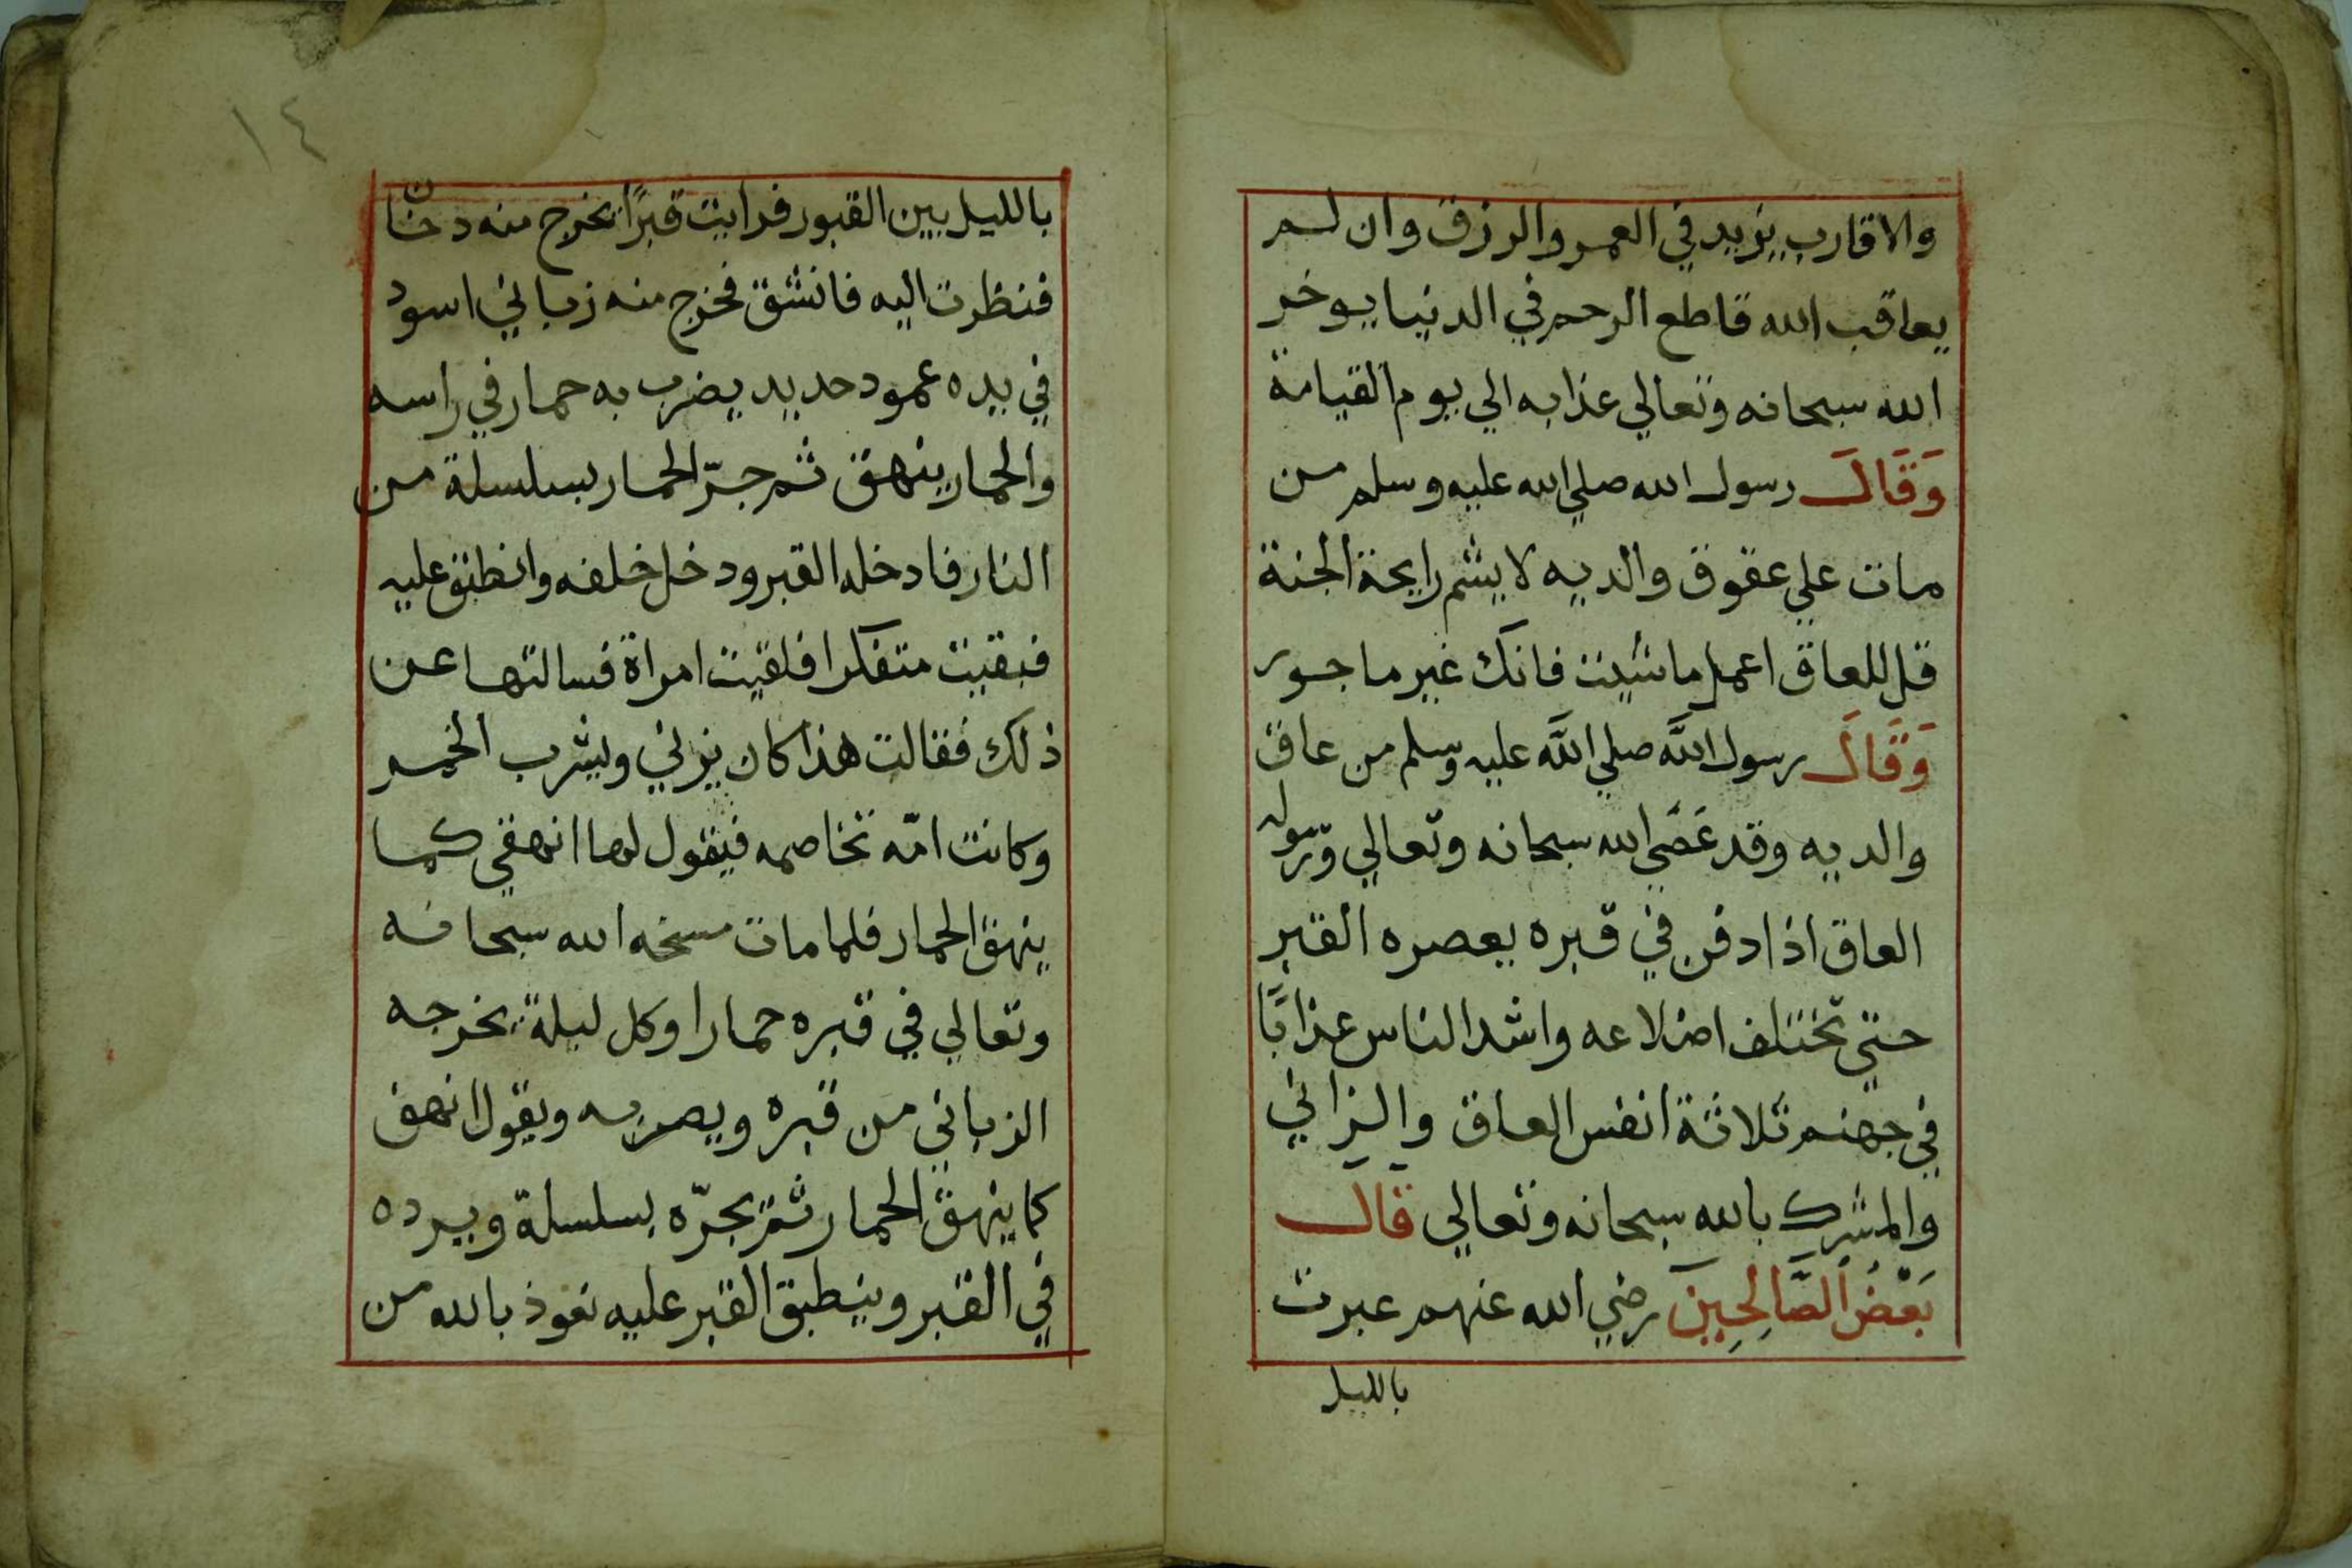 والاقارب يزيد في العمر والرزق وان لم
يعاقب الله قاطع الرحم في الدنيا يوخر
الله سبحانه وتعالي عذابه الي يوم القيامة
وَقَالَ رسول الله صلي الله عليه وسلم من
مات علي عقوق والديه لا يشم رايحة الجنة
قل للعاق اعمل ما شيت فانك غير ماجور
وَقَالَ رسول اللَّه صلي اللَّه عليه وسلم من عاق
والديه وقد عَصَي الله سبحانه وتعالي ورسوله
العاق اذا دفن في قبره يعصره القبر
حتي تختلف اضلاعه واشد الناس عذابًا
في جهنم ثلاثة انفس العاق والزاني
والمشرك بالله سبحانه وتعالي قال
بَعْضُ الصَّالِحِينَ رضي الله عنهم عبرت
بالليل
١٤
بالليل بين القبور فرايت قبرًا يخرج منه دخان
فنظرت اليه فانشق فخرج منه زباني اسود
في يده عمود حديد يضرب به حمار في راسه
والحمار ينهق ثم جرّ الحمار بسلسلة من
النار فادخله القبر ودخل خلفه وانطبق عليه
فبقيت متفكرا فلقيت امراة فسالتها عن
ذلك فقالت هذا كان يزني ويشرب الخمر
وكانت امّه تخاصمه فيقول لها انهقي كما
ينهق الحمار فلما مات مسخه الله سبحانه
وتعالي في قبره حمارا وكل ليلة يخرجه
الزباني من قبره ويضربه ويقول انهق
كما ينهق الحمار ثم يجرّه بسلسلة ويرده
في القبر وينطبق القبر عليه نعوذ بالله من